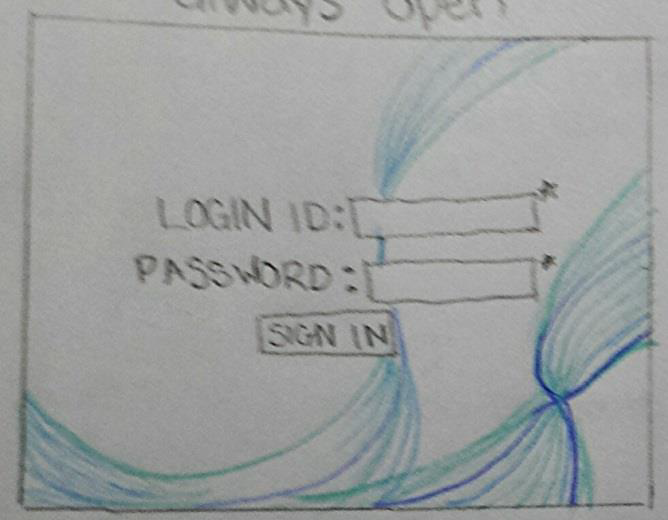 always open
LOGIN ID: *
PASSWORD: *
SIGN IN